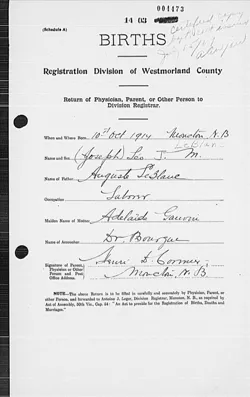 001473
14 03
(Schedule A)
BIRTHS
Registration Division of Westmorland County
Return of Physician, Parent, or Other Person to
Division Registrar.
When and Where Born 10 Oct 1914 Moncton, N.B
LeBlanc
Name and Sex (Joseph) Leo J. M.
Name of Father Auguste LeBlanc
Occupation Labour
Maiden Name of Mother Adelaide
Name of Accoucheur Dr. Bourque
Signature of Parent,
Physician or Other
Person and Post
Office Address
Henri D. Cormier
Moncton, N.B.
NOTE.—The above Return is to be filled in carefully and accurately by Physician, Parent, or
other Person, and forwarded to Antoine J. Leger, Division Registrar, Moncton, N. B., as required by
Act of Assembly, 50th Vic., Cap. 5: "An Act to provide for the Registration of Births, Deaths and
Marriages."